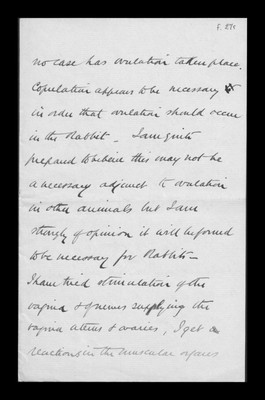 f. 27r
no case has ovulation taken place.
Copulation appears to be necessary
in order that ovulation should occur
in the Rabbit _ I am quite
prepared to believe this may not be
a necessary adjunct to ovulation
in other animals but I am
strongly of opinion it will be found
to be necessary for Rabbits _
I have tried stimulation of the
vagina & of nerves supplying the
vagina uterus & ovaries, I get
reactions in the muscular organs